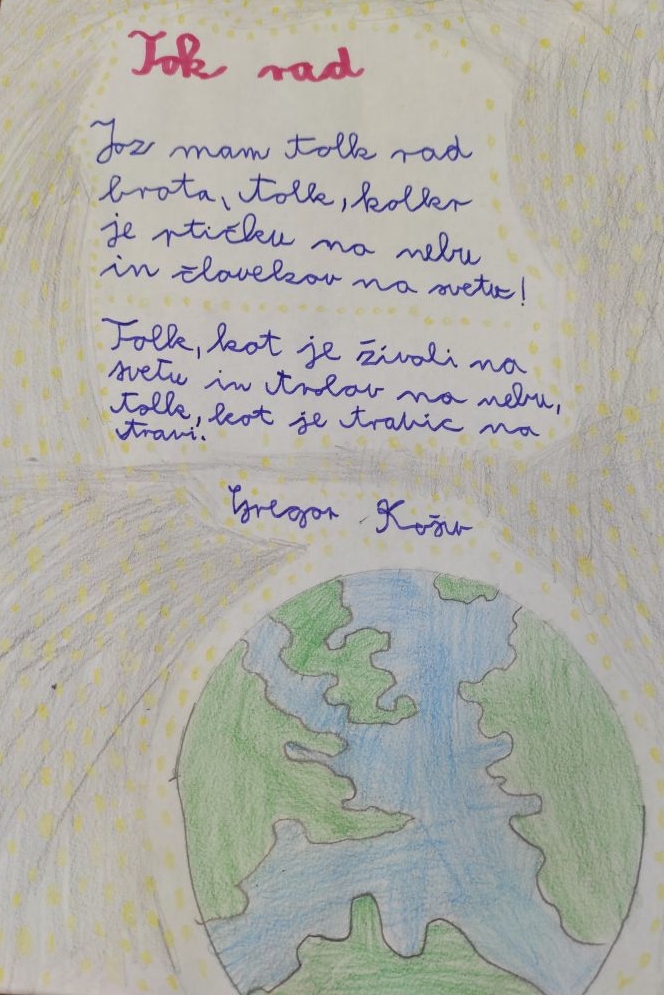 Tok rad
Joz mam tolk rad
brata, tolk, kolkr
je ptičku na nebu
in človekov na svetu!
Tolk, kot je živali na
svetu in trolov na nebu,
tolk, kot je trabic na
travi.
Gregor Košir